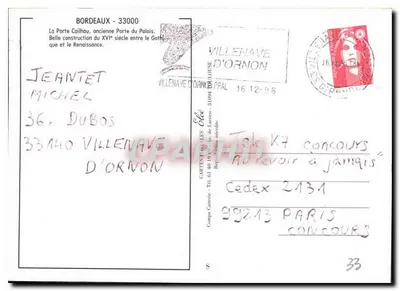 BORDEAUX - 33000
La Porte Cailhau, ancienne Porte du Palais.
Belle construction du XVIe siècle entre le Gothi-
que et le Renaissance.
VILLENAVE
D'ORNON
VILLENAVE D'ORNON PPAL 16-12-96
JEANTET
MICHEL
36. DUBOS
33140 VILLENAVE
D'ORNON
K7 CONCOURS
jamais"
Cedex 2131
99213 PARIS
CONCOURS
33